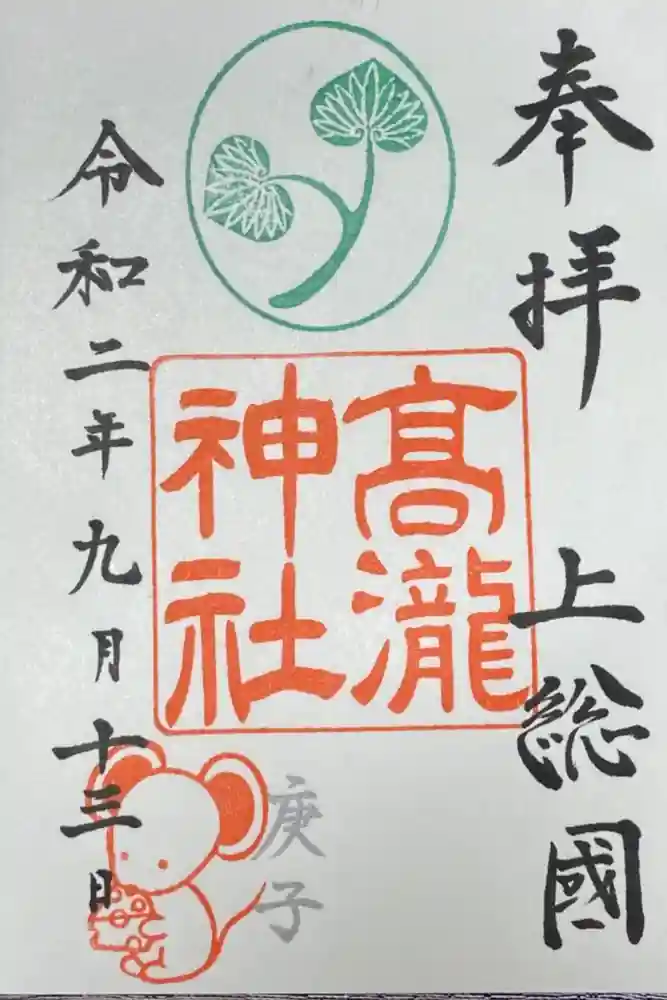 奉拝 上総國
髙瀧
神社
庚子
令和二年九月十三日